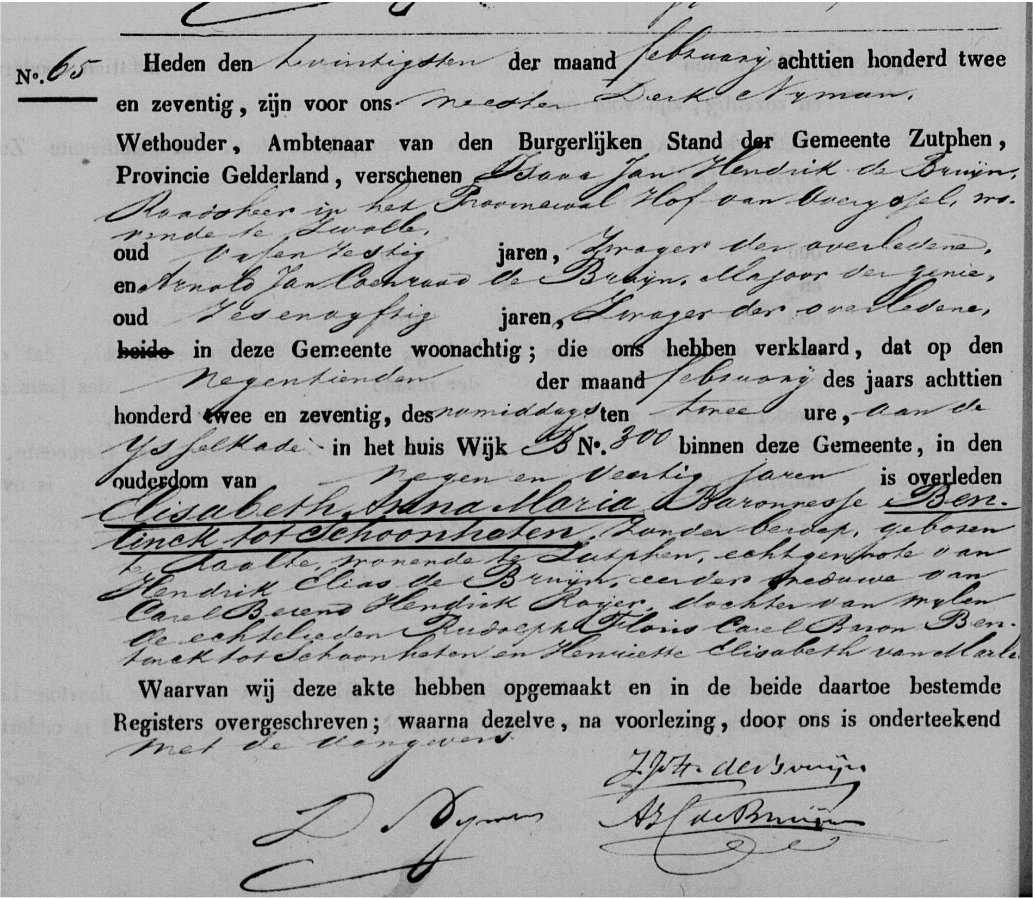 No. 65
Heden den twintigsten der maand februarij achttien honderd twee
en zeventig, zijn voor ons meester Derk Nyman,
Wethouder, Ambtenaar van den Burgerlijken Stand der Gemeente Zutphen,
Provincie Gelderland, verschenen Isaac Jan Hendrik de Bruijn,
Raadsheer in het Provinciaal Hof van Overyssel, wo-
nende te Zwolle,
oud jaren, Zwager der overledene,
en Arnold Jan Coenraad de Bruijn, Majoor der genie,
oud Zesenvyftig jaren, Zwager der overledene,
beide in deze Gemeente woonachtig; die ons hebben verklaard, dat op den
Negentienden der maand februarij des jaars achttien
honderd twee en zeventig, des namiddags ten twee ure, aan de
Ysselkade in het huis Wijk B No. 300 binnen deze Gemeente, in den
ouderdom van negen en veertig jaren is overleden
Elisabeth Anna Maria Baronnesse Ben-
tinck tot Schoonheten, zonder beroep, geboren
te Raalte, wonende te Zutphen, echtgenoote van
Hendrik Elias de Bruijn, eerder weduwe van
Carel Berend Hendrik Royer, dochter van wylen
de echtelieden Rudolph Floris Carel Baron Ben-
tinck tot Schoonheten en Henriette Elisabeth van Marle
Waarvan wij deze akte hebben opgemaakt en in de beide daartoe bestemde
Registers overgeschreven; waarna dezelve, na voorlezing, door ons is onderteekend
met de aangevers
I.J.H. de Bruijn
D Nyman
AJC de Bruijn